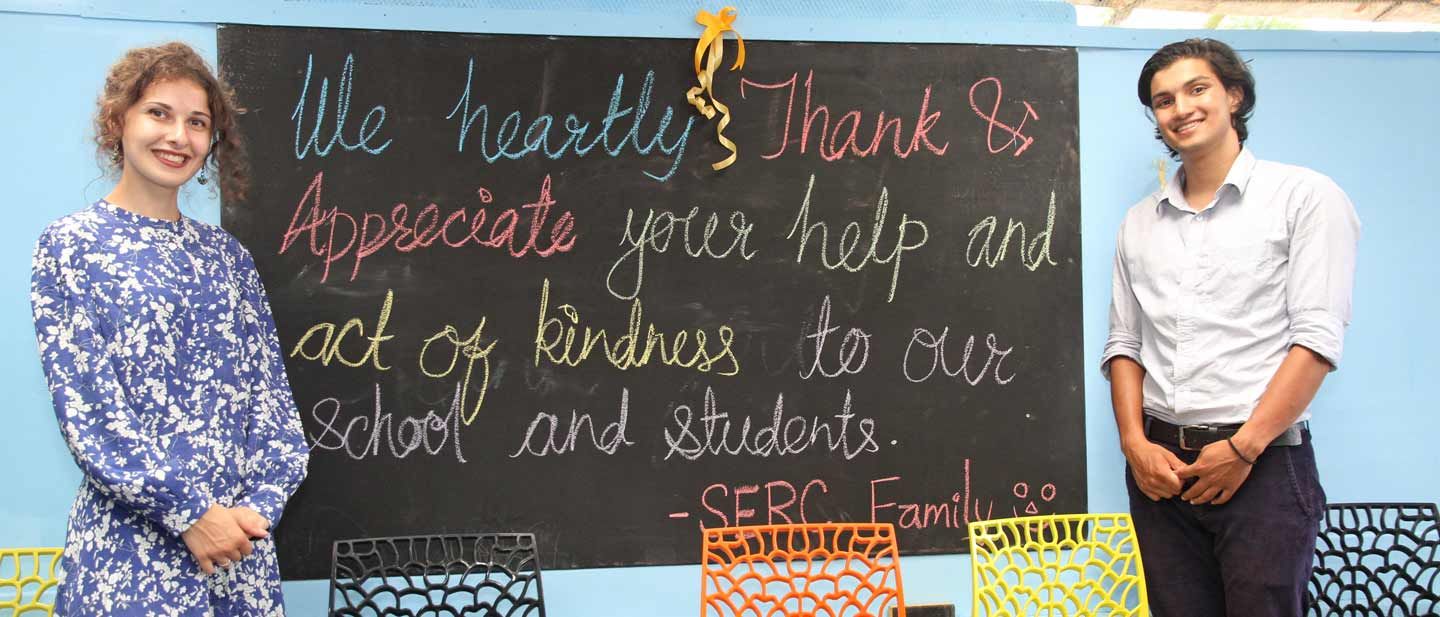 We heartly Thank &
Appreciate your help and
act of kindness to our
school and students.
- SERC Family